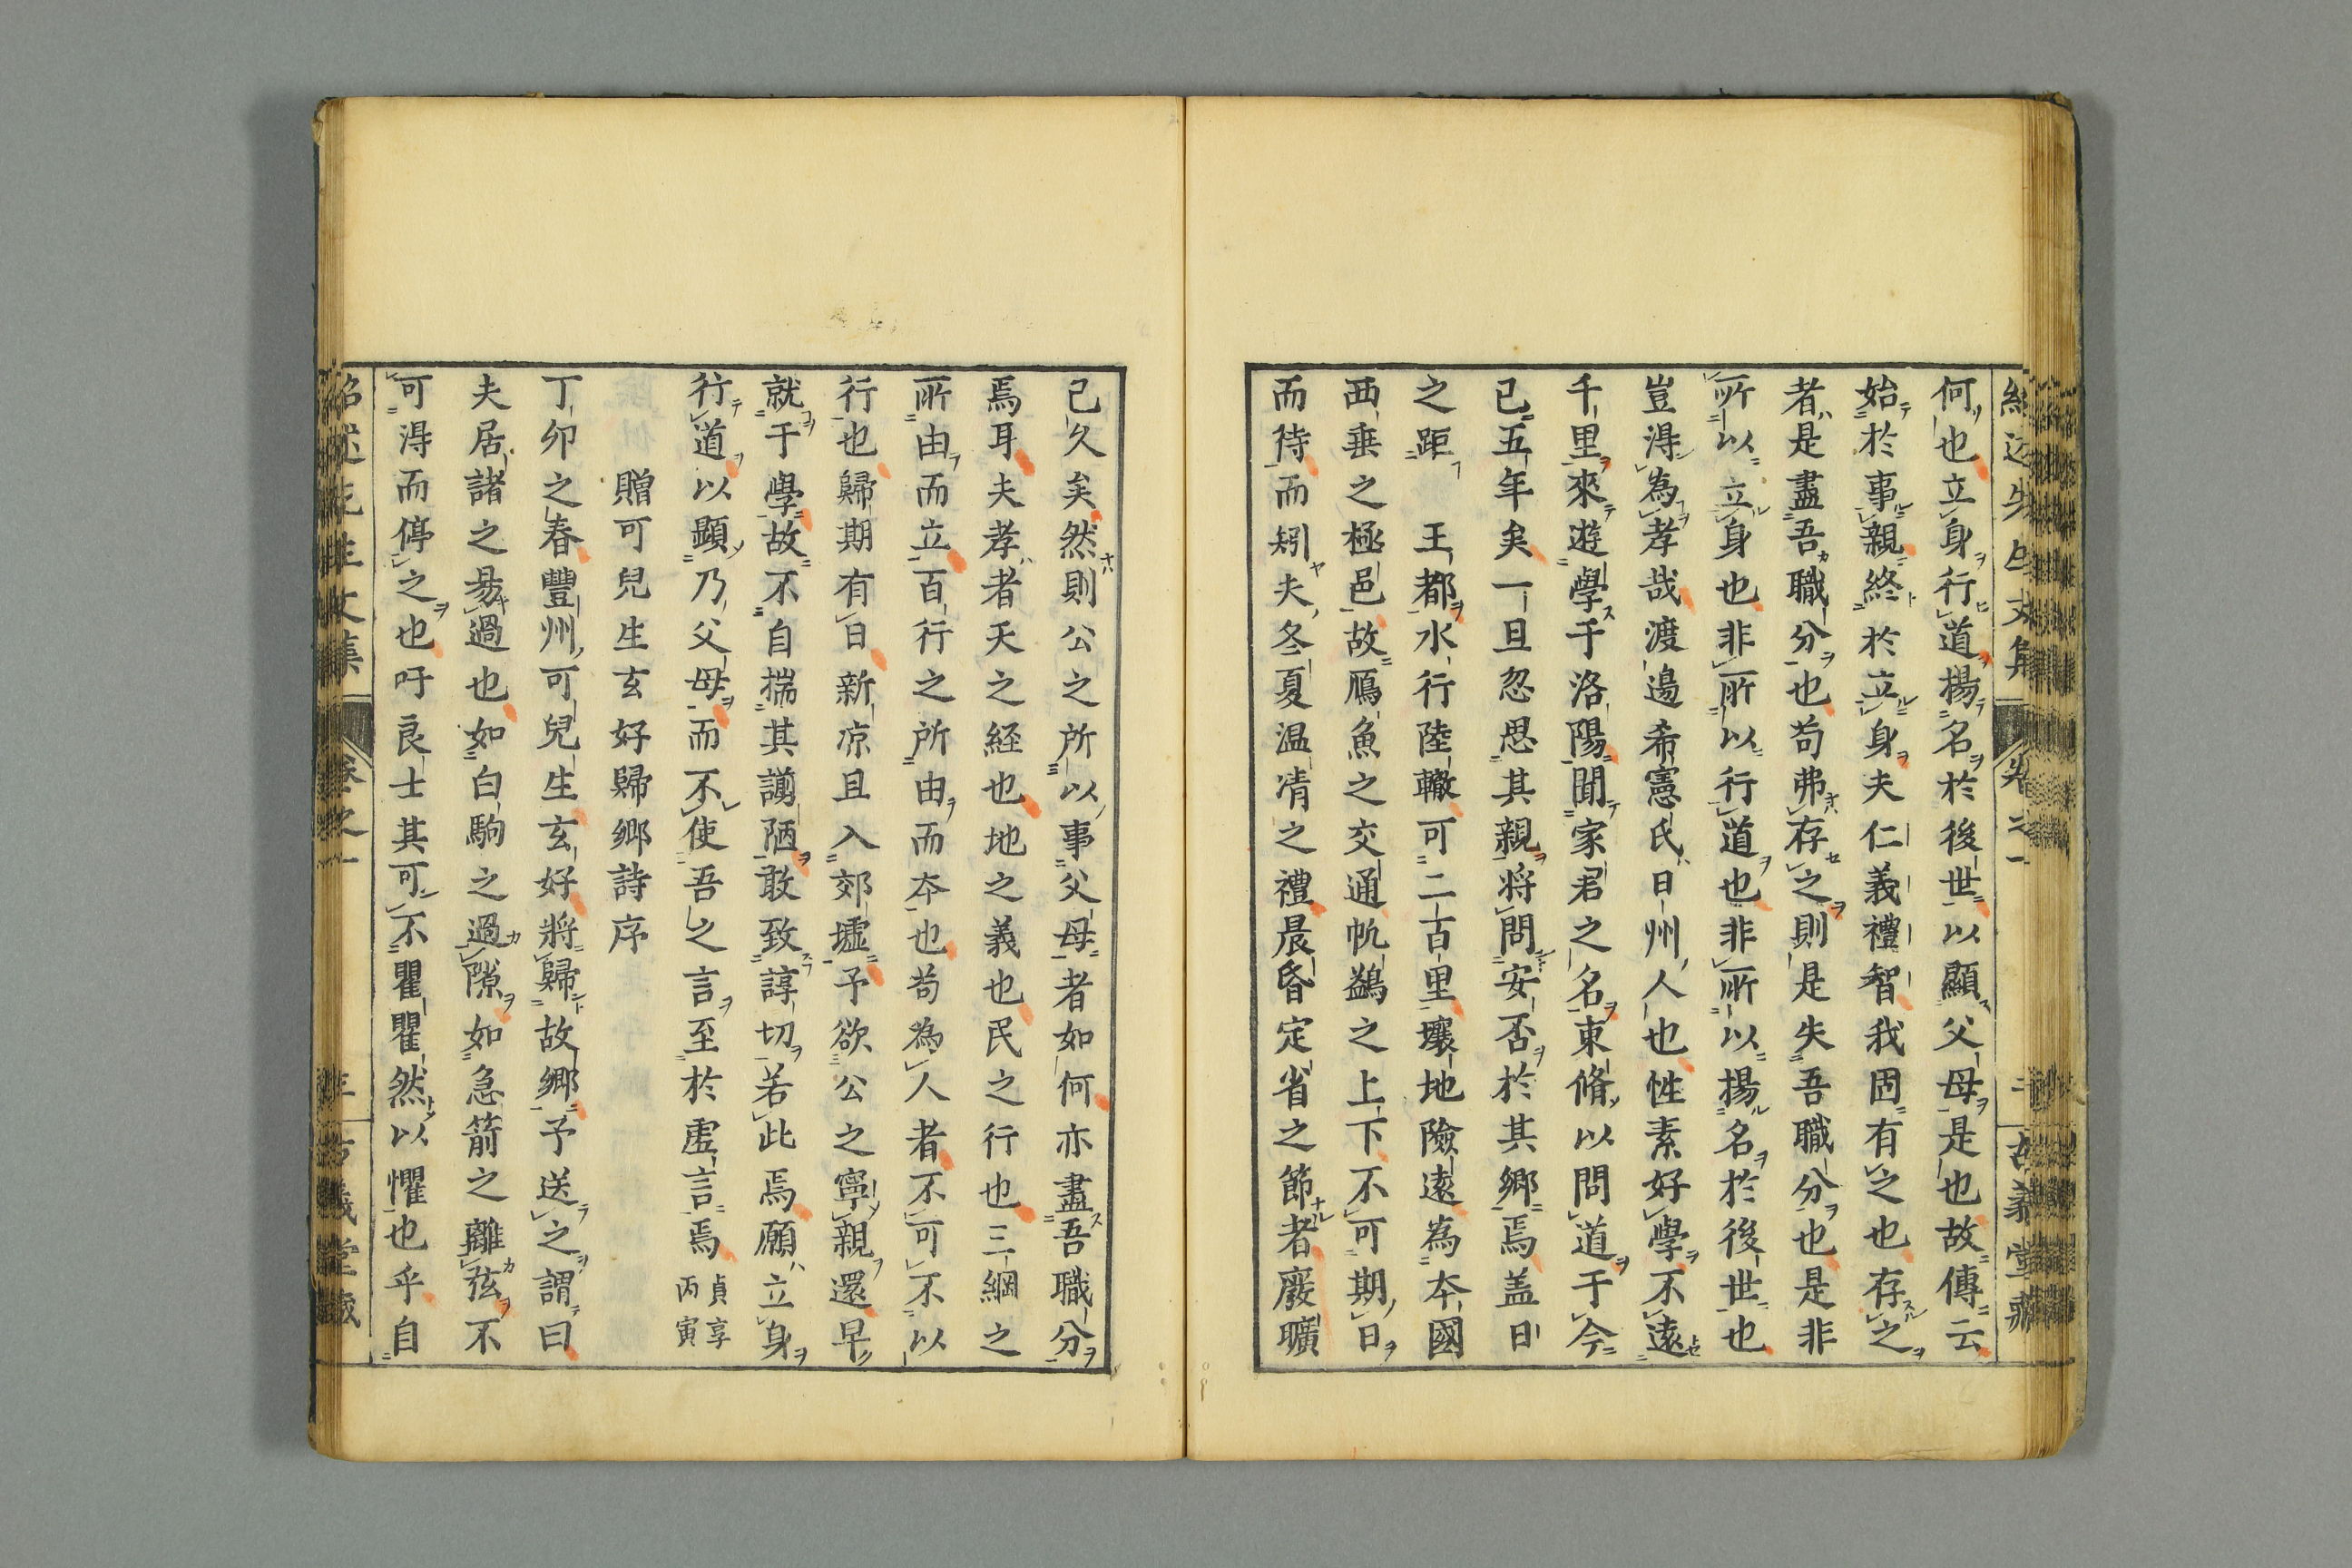 何也立身行道揚名於後世以顯父母是也故傳云
始於事親終於立身夫仁義禮智我固有之也存之
者是盡吾職分也苟弗存之則是失吾職分也是非
所以立身也非所以行道也非所以揚名於後世也
豈得為孝哉渡邉希憲氏日州人也性素好學不遠
千里來遊學于洛陽聞家君之名東脩以問道于今
已五年矣一旦忽思其親將問安否於其鄉焉盖日
之距 王都水行陸轍可二百里壤地險遠為本國
西垂之極邑故鴈魚之交通帆鷁之上下不可期日
而待而矧夫冬夏温凊之禮晨昏定省之節者廢曠
已久矣然則公之所以事父母者如何亦盡吾職分
焉耳夫孝者天之経也地之義也民之行也三綱之
所由而立百行之所由而本也苟為人者不可不以
行也歸期有日新凉且入郊墟予欲公之寧親還早
就于學故不自揣其謭陋敢致諄切若此焉願立身
行道以顯乃父母而不使吾之言至於虚言焉 貞享丙寅
贈可兒生玄好歸鄉詩序
丁卯之春豐州可兒生玄好將歸故鄉予送之謂曰
夫居諸之昜過也如白駒之過隙如急箭之離弦不
可得而停之也吁良士其可不瞿瞿然以懼也乎自
紹述先生文集 卷之一 古義堂藏